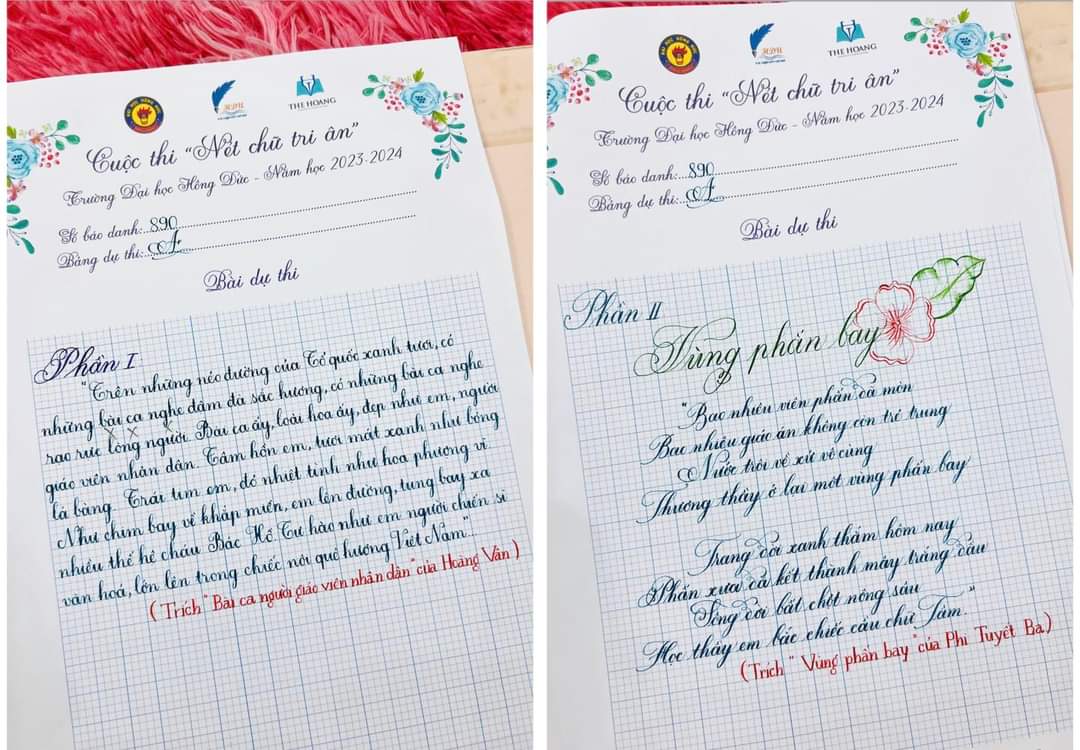 THE HOANG
Cuộc thi “Nét chữ tri ân”
Trường Đại học Hồng Đức - Năm học 2023-2024
Số báo danh:...890
Bảng dự thi:...A
Bài dự thi
Phần I
"Trên những nẻo đường của Tổ quốc xanh tươi, có
những bài ca nghe đằm đà sắc hương, có những bài ca nghe
rạo rực lòng người. Bài ca ấy, loài hoa ấy, đẹp như em, người
giáo viên nhân dân. Tâm hồn em, tươi mát xanh như bóng
lá bàng. Trái tim em, đỏ nhiệt tình như hoa phượng vĩ
Như chim bay về khắp miền, em lên đường, tung bay xa
nhiều thế hệ cháu Bác Hồ. Tự hào như em người chiến sĩ
văn hoá, lớn lên trong chiếc nôi quê hương Việt Nam."
(Trích "Bài ca người giáo viên nhân dân" của Hoàng Vân)
THE HOANG
Cuộc thi “Nét chữ tri ân”
Trường Đại học Hồng Đức - Năm học 2023-2024
Số báo danh:...890
Bảng dự thi:...A
Bài dự thi
Phần II
Vùng phấn bay
"Bao nhiêu viên phấn đã mòn
Bao nhiêu giáo án không còn trẻ trung
Nước trôi về xứ vô cùng
Thương thầy ở lại một vùng phấn bay
Trang đời xanh thắm hôm nay
Phấn xưa đã kết thành mây trắng đầu
Sông đời bất chợt nông sâu
Học thầy em bắc chiếc cầu chữ Tâm."
(Trích "Vùng phấn bay" của Phi Tuyết Ba)